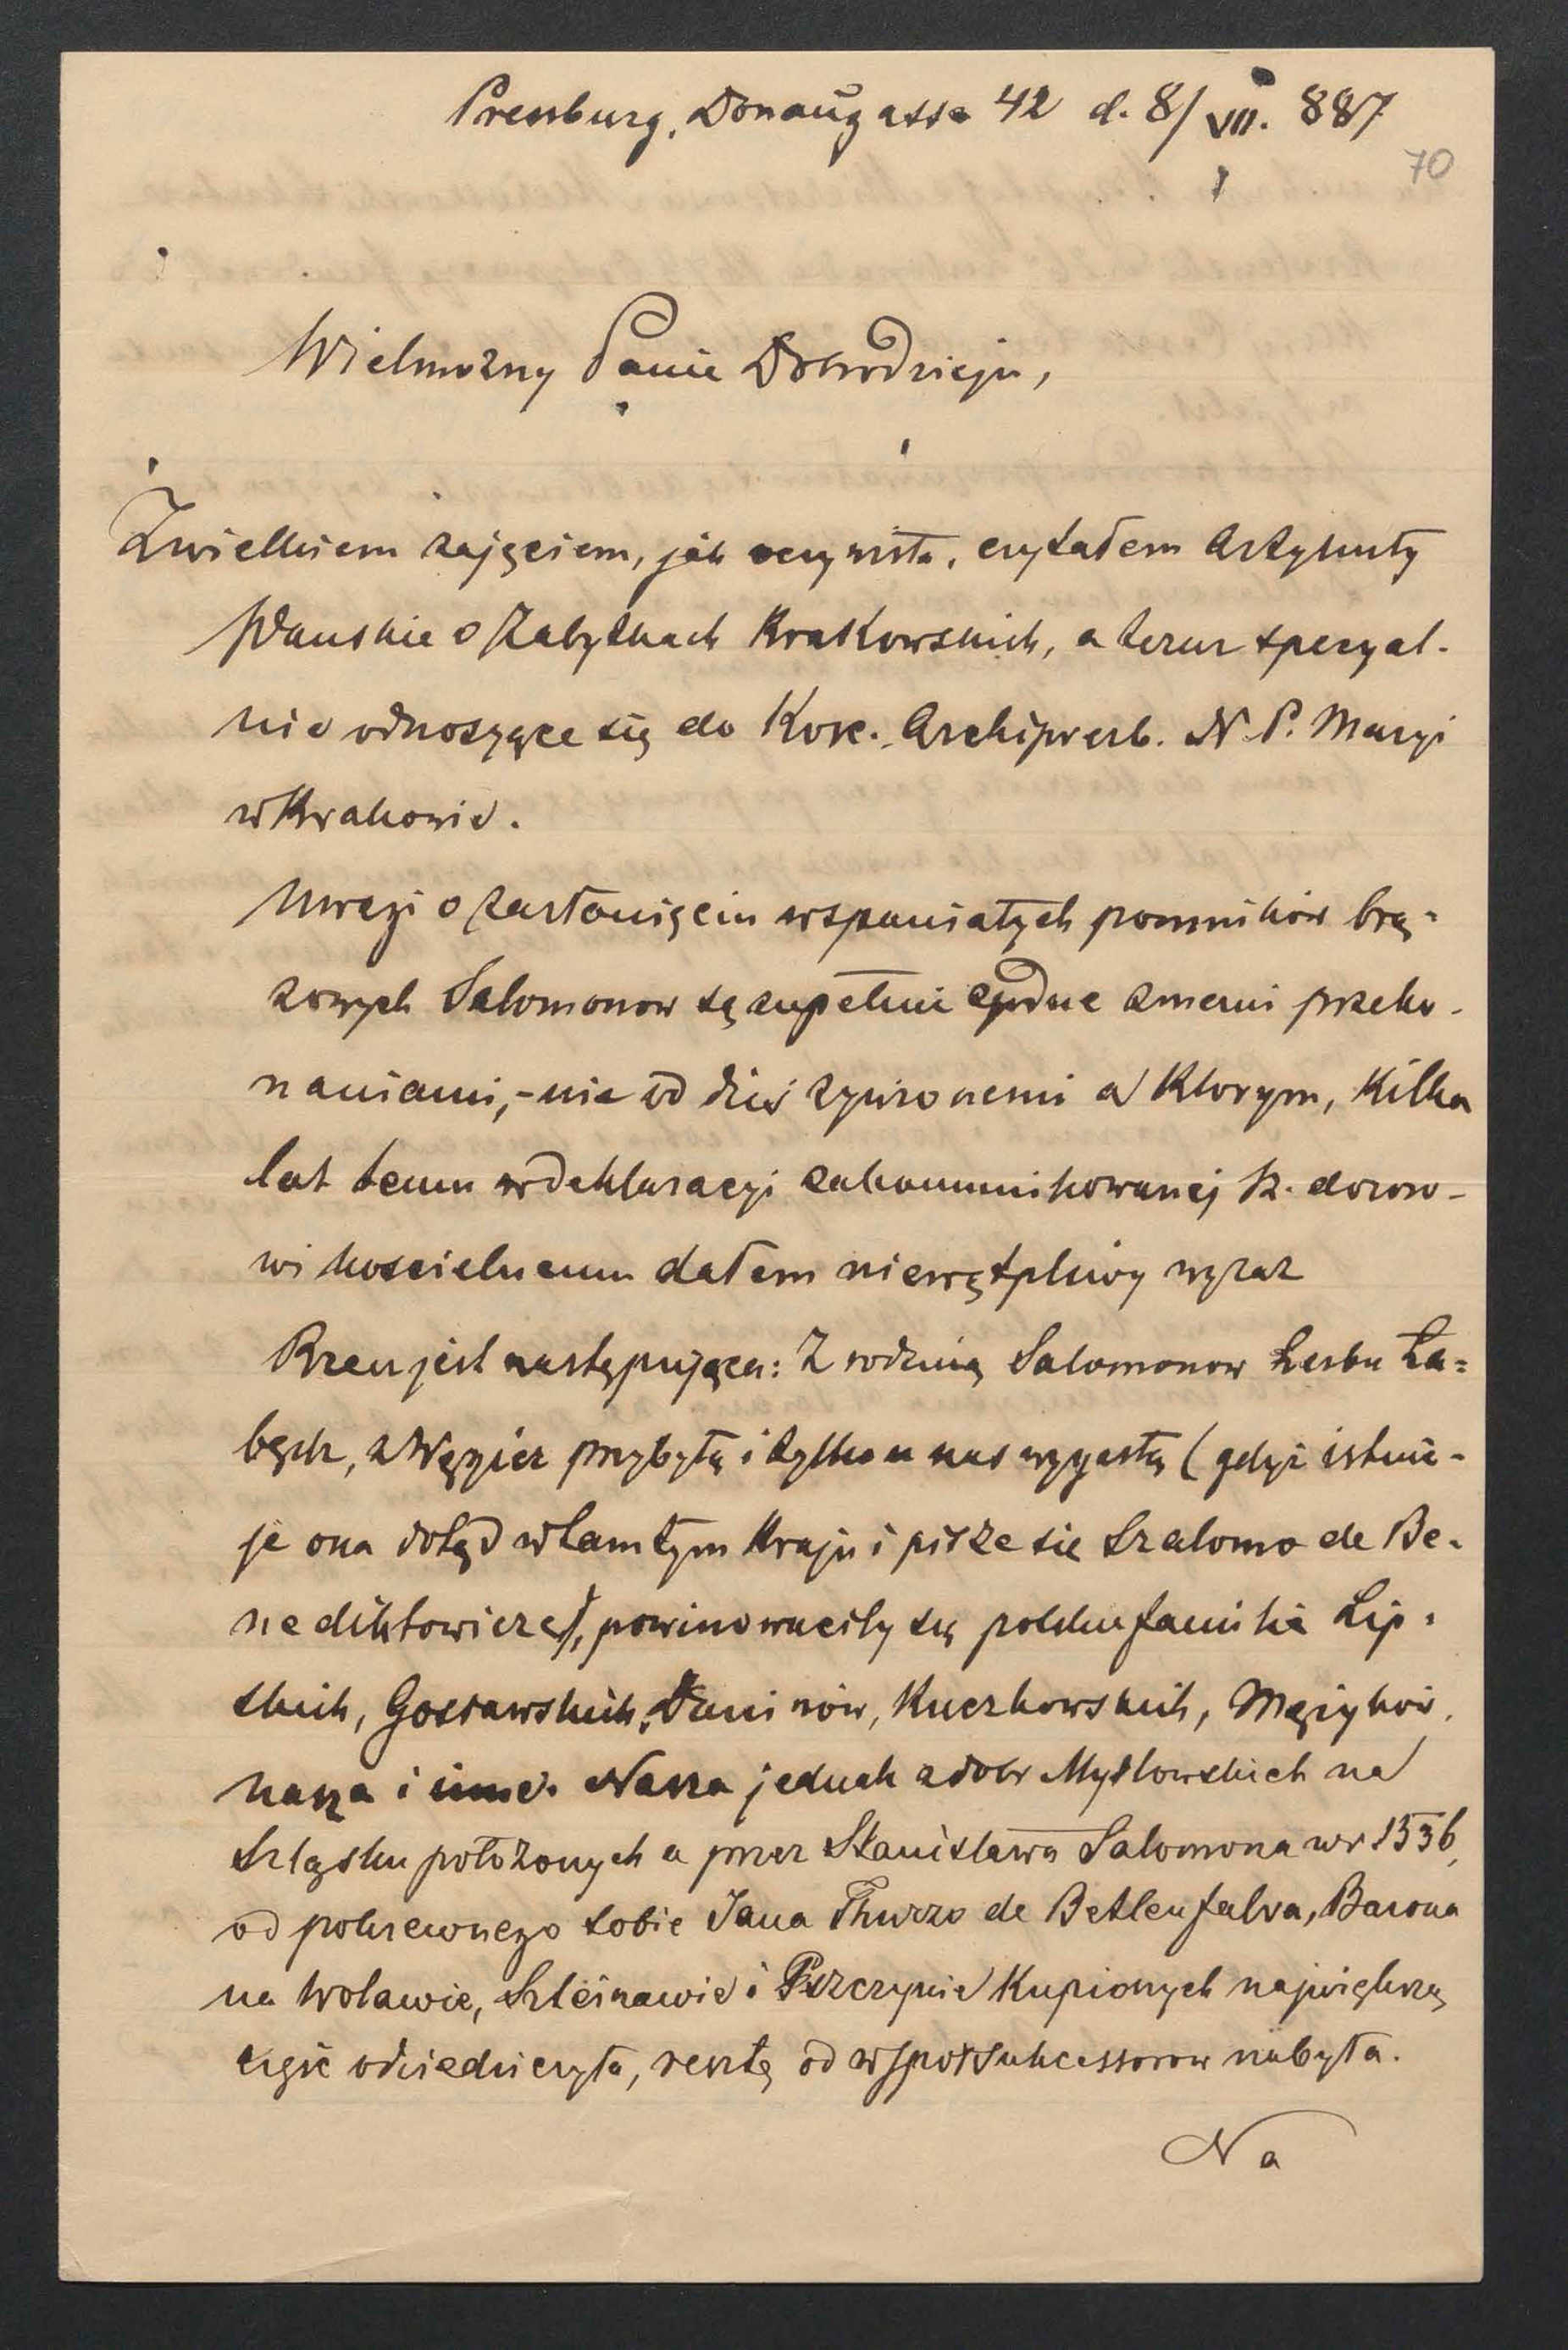 Pressburg, Donaugasse 42 d. 8/VII. 887
70
Wielmożny Panie Dobrodzieju,
Z wielkiem zajęciem, jak oczywista, czytałem Artykuły
Pańskie o Zabytkach Krakowskich, a teraz specyal-
nie odnoszące się do Kośc. Archipresb. N. P. Maryi
w Krakowie.
Uwagi o zasłonięciu wspaniałych pomników brą=
zowych Salomonow są zupełnie zgodne z memi przeko-
naniami, - nie od dziś żywionemi a którym, kilka
lat temu w deklaracyi zakommunikowanej k. dozoro-
wi kościelnemu dałem niewątpliwy wyraz
Rzecz jest następująca: Z rodziną Salomonow herbu Ła=
będź, z Węgier przybyłą i tylko u nas wygasłą (gdyż istnie-
je ona dotąd w tamtym kraju i pisze się Szalomo de Be-
nediktowicze), powinowaciły się polskie familie Lip=
skich, Gosławskich, Daninów, Kuczkowskich, Mężyków,
nasza i inne. Nasza jednak z dóbr Mysłowskich na
Szląsku położonych a przez Stanisława Salomona w r 1536,
od pokrewnego sobie Jana Thurzo de Betlenfalva, Barona
na Wolawie, Szteinawie i Pszczynie kupionych największą
część odziedziczyła, resztę od współsukcessorow nabyła.
Na